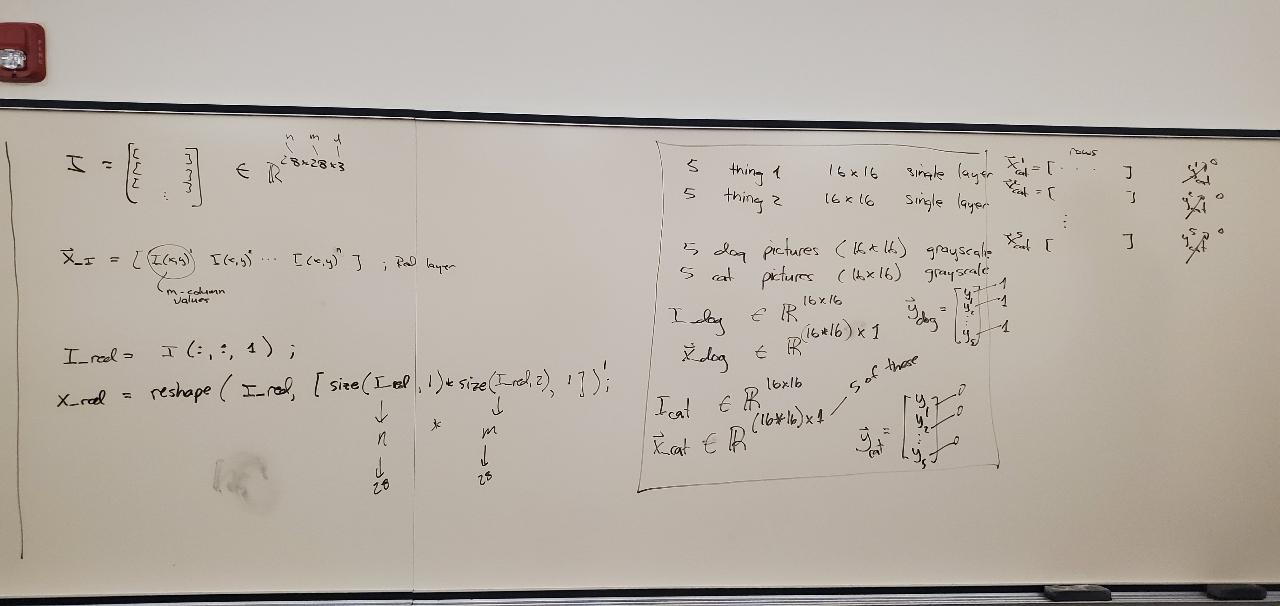 n m d
I = [ [ ] [ ] [ ] ⋮ ] ∈ ℝ^28×28×3
x⃗_I = [ I(x,y)¹ I(x,y)² ⋯ I(x,y)ⁿ ] ; Red layer
m-column
values
I_red = I(:,:,1);
X_red = reshape( I_red, [size(I_red,1)*size(I_red,2), 1])';
n * m
28 28
5 thing 1 16×16 single layer
5 thing 2 16×16 single layer
5 dog pictures (16*16) grayscale
5 cat pictures (16×16) grayscale
I_dog ∈ ℝ^16×16
x⃗_dog ∈ ℝ^(16*16)×1
y⃗_dog = [ y₁ y₂ ⋮ y₅ ] 1 1 1
I_cat ∈ ℝ^16×16
x⃗_cat ∈ ℝ^(16*16)×1 5 of these
y⃗_cat = [ y₁ y₂ ⋮ y₅ ] 0 0 0
rows
x⃗¹_cat = [ · · · ] y¹_cat 0
x⃗²_cat = [ ] y²_cat 0
⋮
x⃗⁵_cat [ ] y⁵_cat 0